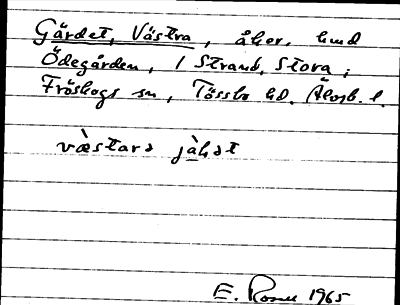 Gärdet, Västra, åker, hmd
Ödegården, 1 Strand, Stora,
Fröskogs sn, Tössbo hd. Älvsb. l.
væ̀stara jàḷət
E. 1965